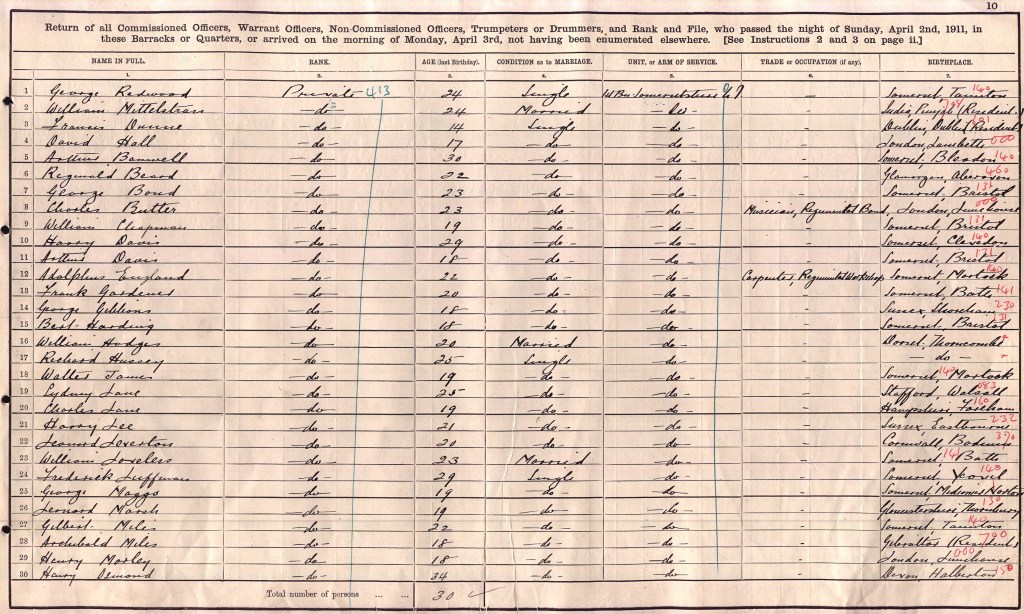 10
Return of all Commissioned Officers, Warrant Officers, Non-Commissioned Officers, Trumpeters or Drummers, and Rank and File, who passed the night of Sunday, April 2nd, 1911, in
these Barracks or Quarters, or arrived on the morning of Monday, April 3rd, not having been enumerated elsewhere. [See Instructions 2 and 3 on page ii.]
NAME IN FULL. RANK. AGE (last Birthday). CONDITION as to MARRIAGE. UNIT, or ARM OF SERVICE. TRADE or OCCUPATION (if any). BIRTHPLACE.
1. 2. 3. 4. 5. 6. 7.
1 George Redwood Private 413 24 Single 1st Bn Somersetshire Somerset, Taunton 140
2 William Mittelstrass -do- 24 Married -do- India, Punjab (Resident)
3 Francis Dunne -do- 14 Single -do- - Dublin, Dublin (Resident)
4 David Hall -do- 17 -do- -do- - London, Lambeth 000
5 Arthur Banwell -do- 30 -do- -do- - Somerset, Bleadon 140
6 Reginald Beard -do- 22 -do- -do- - Glamorgan, Aberavon 460
7 George Bond -do- 23 -do- -do- - Somerset, Bristol 131
8 Charles Butter -do- 23 -do- -do- Musician, Regimental Band, London, Limehouse 000
9 William Chapman -do- 19 -do- -do- - Somerset, Bristol 131
10 Harry Davis -do- 29 -do- -do- - Somerset, Clevedon 140
11 Arthur Davis -do- 18 -do- -do- - Somerset, Bristol 131
12 Adolphus England -do- 22 -do- -do- Carpenter, Regimental Workshop Somerset, Martock 140
13 Frank Gardener -do- 20 -do- -do- - Somerset, Bath 141
14 George Gibbons -do- 18 -do- -do- - Sussex Shoreham 230
15 Bert Harding -do- 18 -do- -do- - Somerset, Bristol 131
16 William Hodges -do- 20 Married -do- - Dorset, Thorncombe
17 Richard Hussey -do- 25 Single -do- - -do-
18 Walter James -do- 19 -do- -do- - Somerset, 140 Martock
19 Sydney Lane -do- 25 -do- -do- - Stafford, Walsall 083
20 Charles Lane -do- 19 -do- -do- - Hampshire, Fareham 160
21 Harry Lee -do- 21 -do- -do- - Sussex Eastbourne 232
22 Leonard Leverton -do- 20 -do- -do- - Cornwall, Bodmin 370
23 William Loveless -do- 23 Married -do- - Somerset, 141 Bath
24 Frederick Luffman -do- 29 Single -do- - Somerset, Yeovil 140
25 George Maggs -do- 19 -do- -do- - Somerset, Midsomer Norton
26 Leonard Marsh -do- 19 -do- -do- - Gloucestershire, Thornbury 130
27 Gilbert Miles -do- 22 -do- -do- - Somerset, Taunton 140
28 Archibald Miles -do- 18 -do- -do- - Gibraltar (Resident) 790
29 Henry Morley -do- 18 -do- -do- - London, Limehouse 000
30 Henry Osmond -do- 34 -do- -do- - Devon Halberton 150
Total number of persons ... ... 30 ✓